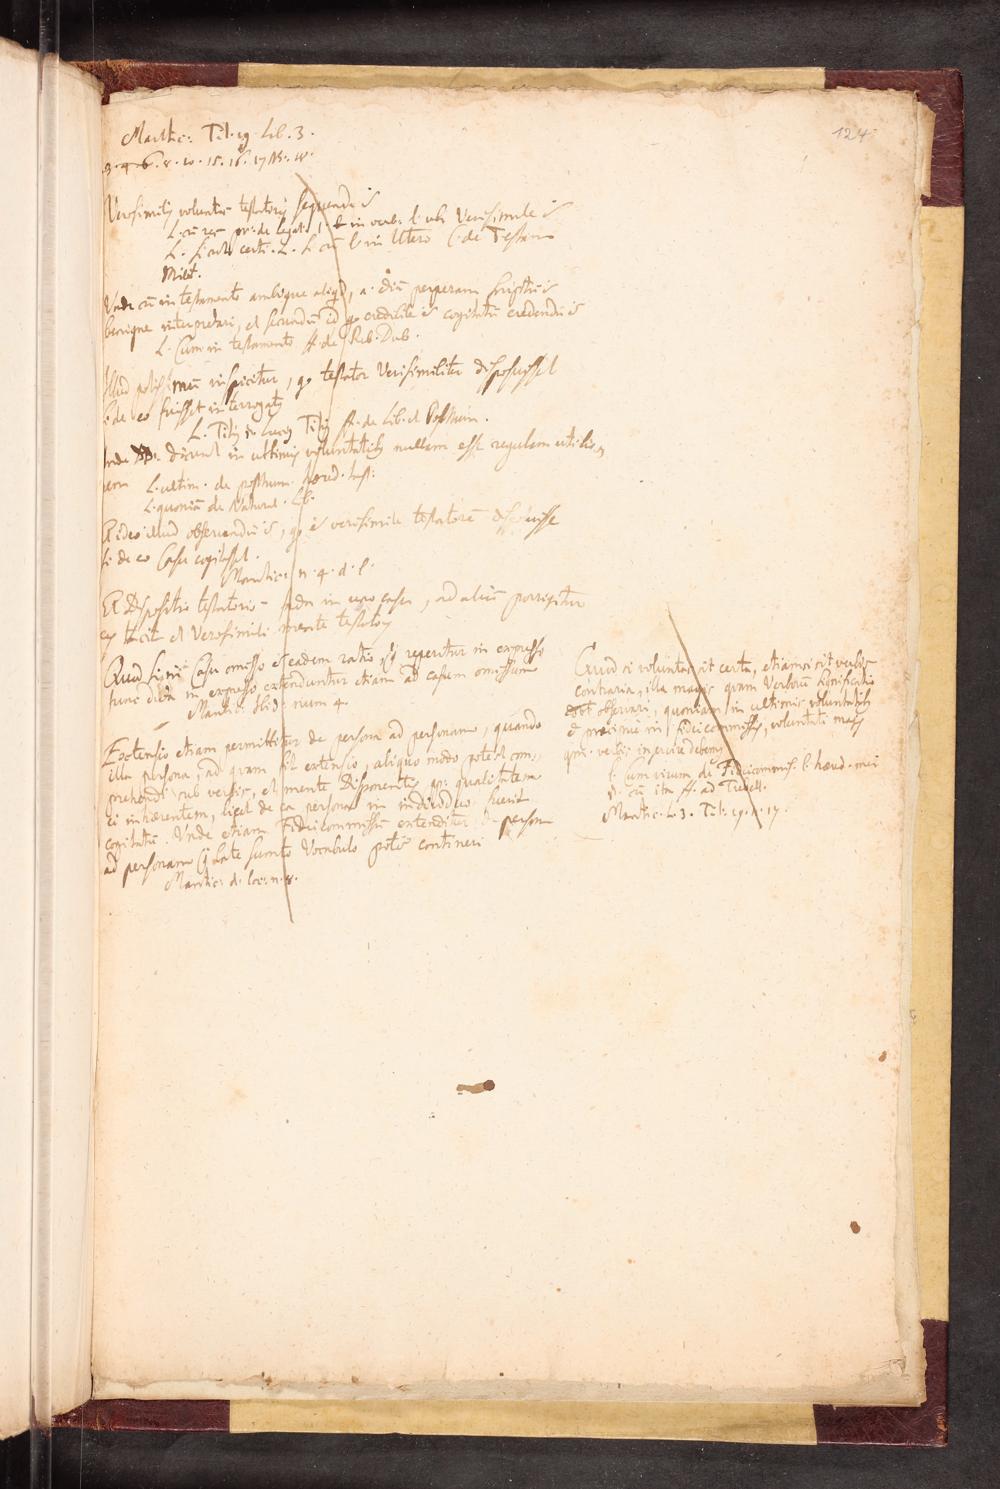 124
Mantic: Tit. 19. Lib. 3.
3. 4. 6. 8. 10. 15. 16. 17. 18.
Verosimilis voluntas testatoris sequenda ē
in verb: l. ubi Verisimile ē
L. in Utero C. de Testam
Milit.
Unde cū in testamento ambigue aliquid, a. etiā perperam scriptū ē
benigne interpretari, et secundū id qᵒ credibile ē cogitatū credendū ē
L. Cum in testamento ff. de Reb. Dub.
Illud potissimum inspicitur, qᵒ testator Verisimiliter disposuisset
si de eo fuisset interrogatus
L. Titius §. Lucius Titius ff. de Lib. et Posthum.
Unde DD. dicunt in ultimis voluntatibus nullam esse regulam
L. ultim. de posthum. hæred. inst.
L. quoniā de Natural. Lib.
Et ideo illud observandū ē, qᵒ ē verisimile testatorē disposuisse
si de eo Casu cogitasset.
Mantic: n. 4. d. l.
Et Dispositio testatoris facta in uno casu, ad aliū porrigitur
ex tacit. et Verosimili mente testatoris
Quod si in Casu omisso ē eadem ratio quæ reperitur in expresso
tunc dicta in expresso extenduntur etiam ad casum omissum
Mantic: ibid: num 4.
Extensio etiam permittitur de persona ad personam, quando
illa persona, ad quam fit extensio, aliquo modo potest com-
prehendi sub verbis, et mente Disponentis, pp: qualitatem
ei inhærentem, licet de ea persona in individuo fuerit
cogitatū. Unde etiam Fideicommissū extenditur de persona
ad personam q̄ Late sumto Vocabulo potest contineri
Mantic: d. loc: n. 8.
Quod si voluntas sit certa, etiamsi sit verbis
contraria, illa magis quam Verborū significatio
debet observari, quoniam in ultimis voluntatibus
et præcipue in fideicommissis, voluntati magis
quā verbis inservire debemus
l. Cum virum de Fideicommis. l. hæred. mei
§. cū ita ff. ad Trebell.
Mantic. L. 3. Tit. 19. n. 17.